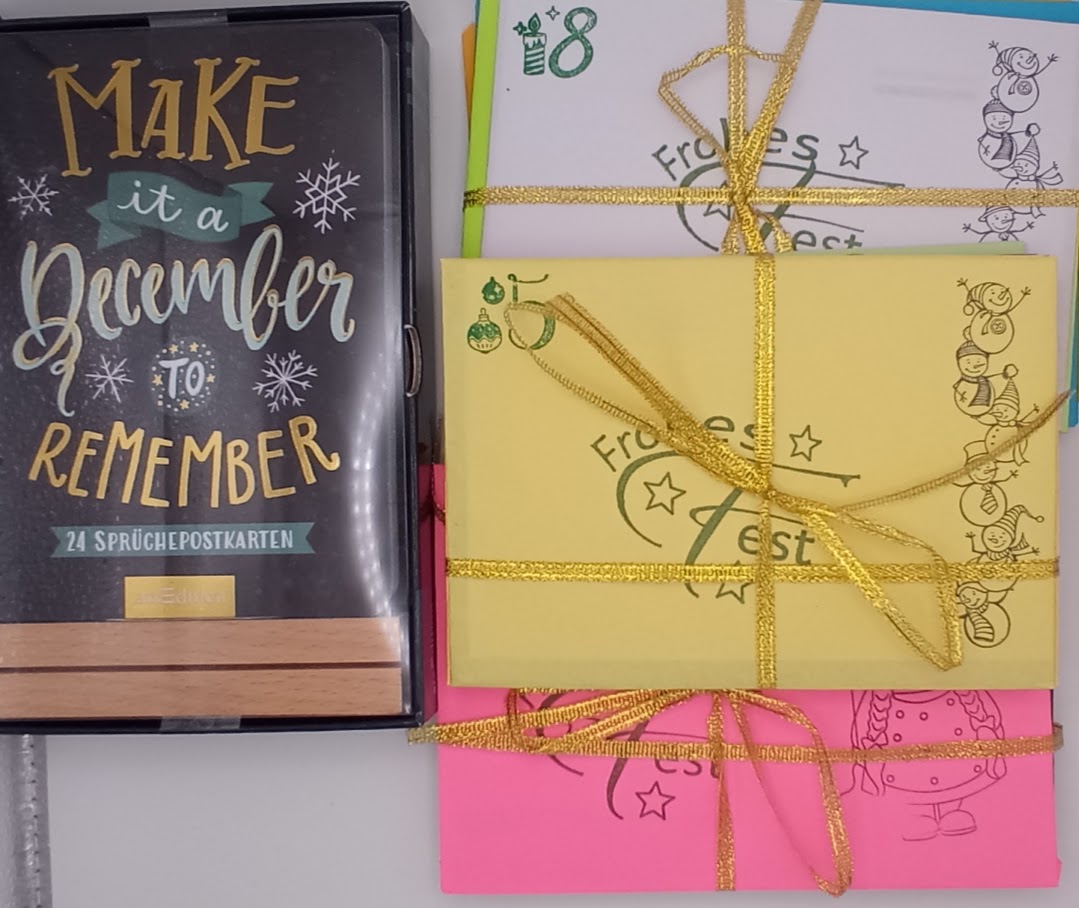 MAKE
it a
December
TO
REMEMBER
24 SPRÜCHEPOSTKARTEN
arsEdition
18
Frohes
Fest
5
Frohes
Fest
Fest